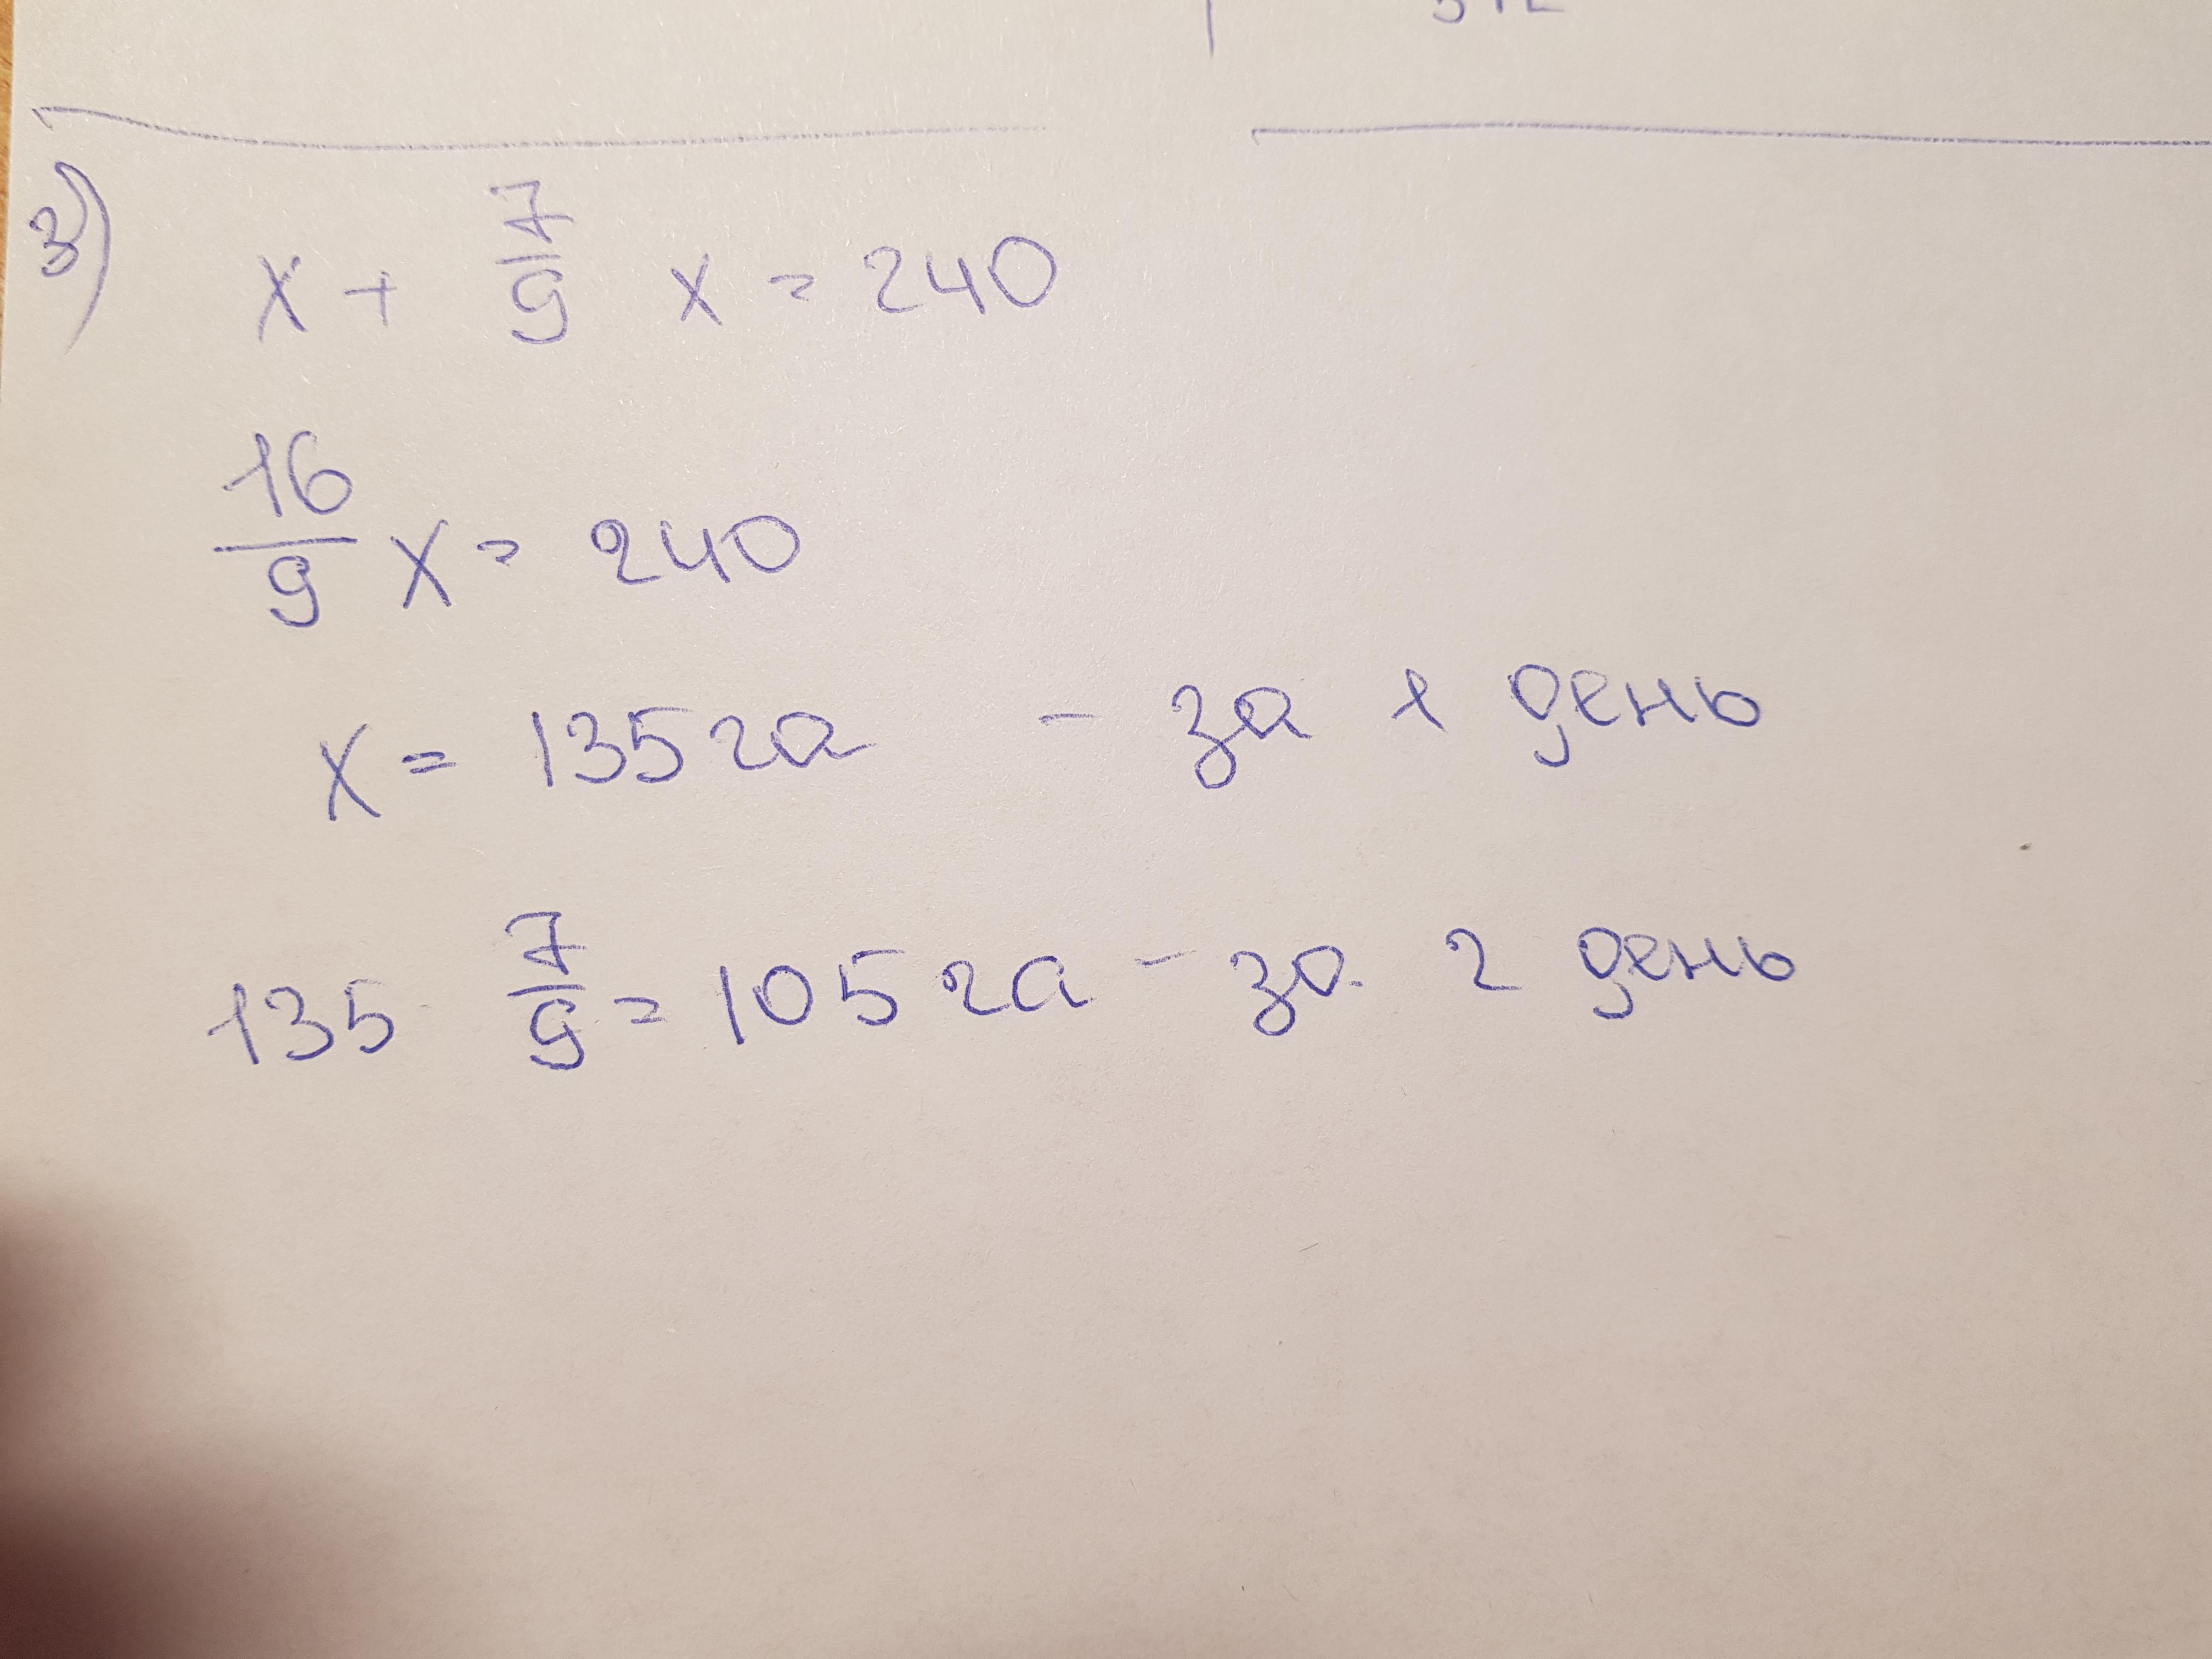 3) x + 7/9 x = 240
16/9 x = 240
x = 135 га - за 1 день
135 · 7/9 = 105 га - за 2 день